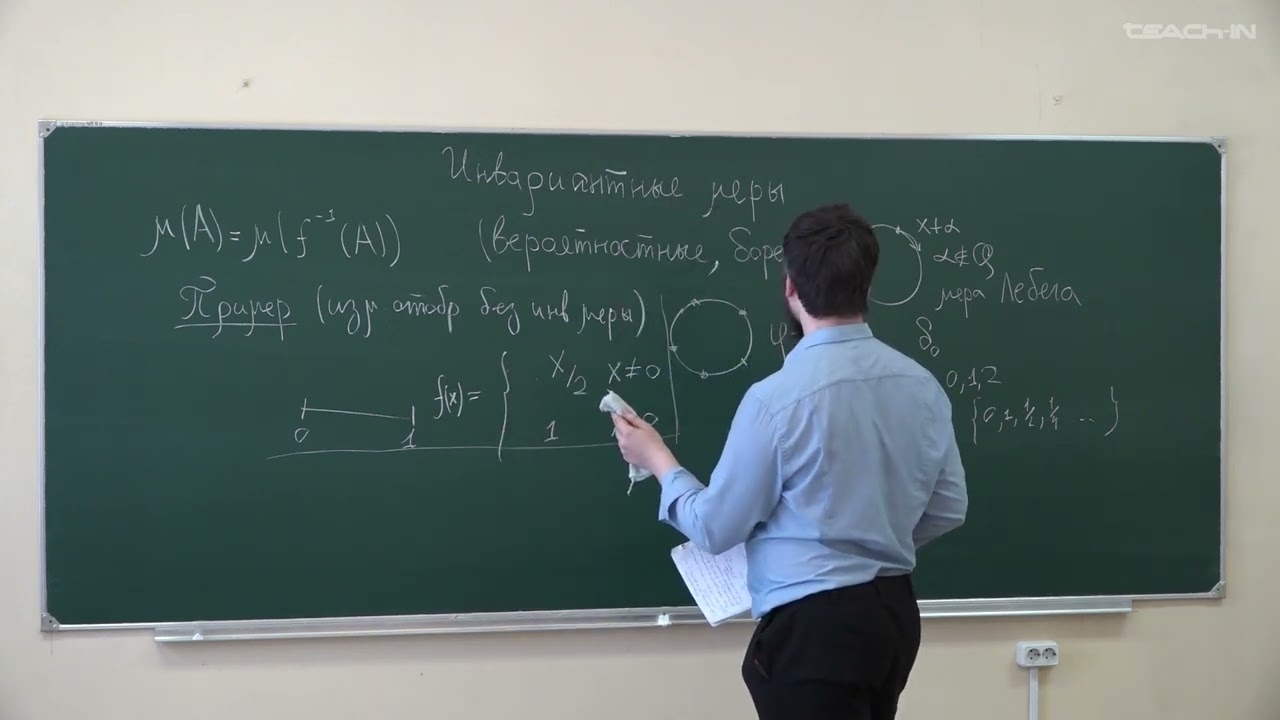 TEACH-IN
Инвариантные меры
μ(A) = μ(f⁻¹(A)) (вероятностные, боре
x+α
α∉ℚ
мера Лебега
Пример (изм отобр без инв меры)
δ₀
f(x) = { x/2 x≠0
1 0
0 1
0,1,2
{0, 1, ½, ¼ ... }